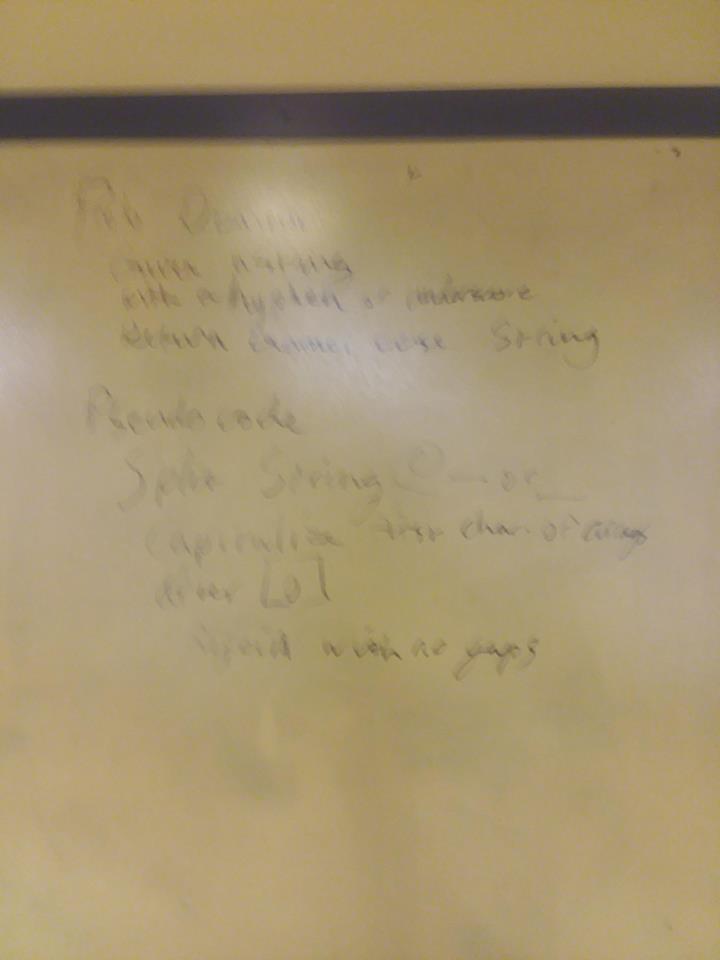 Prob Domain
given a string
with a hyphen or underscore
Return cammel case String
Pseudo code
Split String @ - or _
capitalize first char of arrays
after [0]
with no gaps